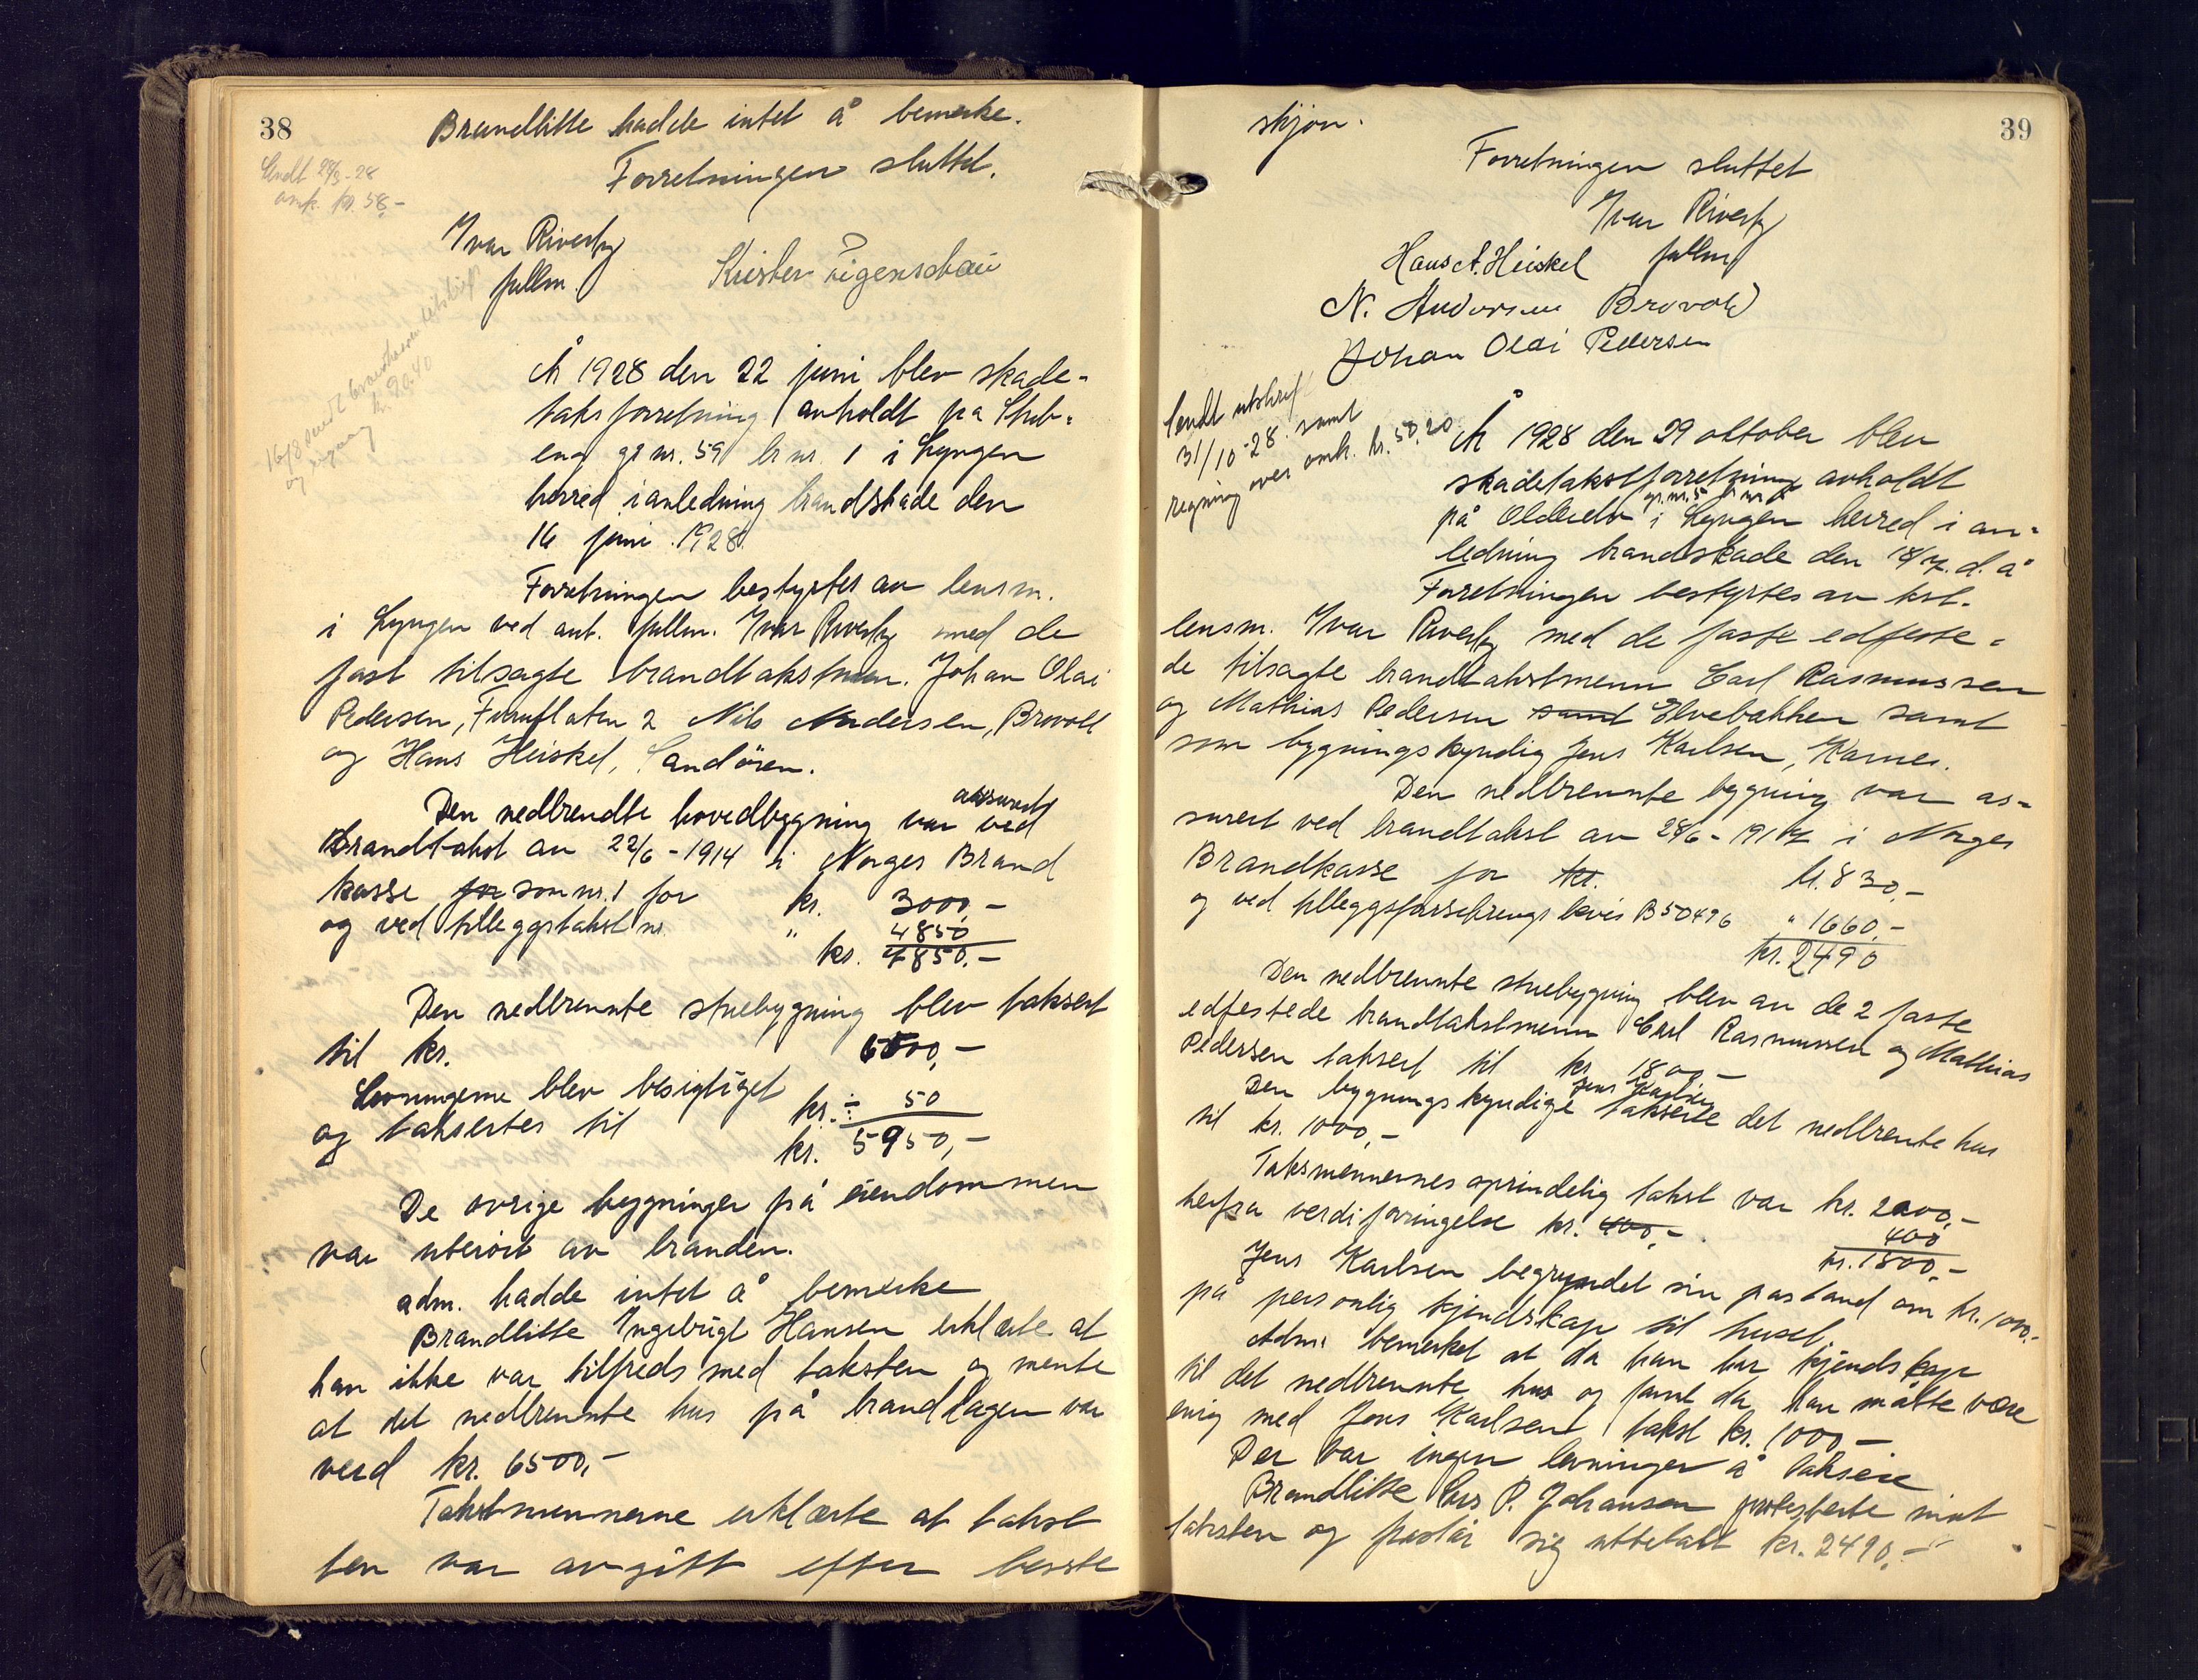 38
Brandlitte hadde intet å bemerke.
Forretningen sluttet.
Sendt 28/3-28
omk. kr. 58,-
Ivar Riverty
fullm.
16/8 sendt brandkassen utskrift
og regning kr. 20.40
År 1928 den 22 juni blev skade-
taksforretning avholdt på Steb-
eng gr nr. 59 br nr. 1 i Lyngen
herred i anledning brandskade den
16 juni 1928.
Forretningen bestyrtes av lensm.
i Lyngen ved aut. fullm. Ivar Riverty med de
fast tilsagte brandtakstmen. Johan Olai
Pedersen, Furuflaten 2 Nils Andersen, Brovold
og Hans Heiskel, Sandören.
Den nedbrendte hovedbygning var assurert ved
Brandtakst av 22/6-1914 i Norges Brand
kasse for som nr. 1 for kr. 3000,-
og ved tilleggstakst nr. " 4850
kr. 7850.-
Den nedbrennte stuebygning blev taksert
til kr. 6000,-
Levningerne blev besigtiget
og taksertes til kr. ÷ 50
kr. 5950,-
De øvrige bygninger på eiendommen
var uberört av branden.
adm. hadde intet å bemerke
Brandlitte Ingebrigt Hansen erklærte at
han ikke var tilfreds med taksten og mente
at det nedbrennte hus på branddagen var
verd kr. 6500,-
Takstmennene erklærte at takst
ten var avgitt efter beste
39
skjøn.
Forretningen sluttet
Ivar Riverty
fullm
Hans A. Heiskel
N. Andersen Brovold
Johan Olai Pedersen
Sendt utskrift
31/10-28 samt
regning over omk. kr. 50,20
År 1928 den 29 oktober blev
skadetakstforretning avholdt
gr. nr. 5 br nr
på Olderelv i Lyngen herred i an-
ledning brandskade den 18/7. d. å
Forretningen bestyrtes av kst.
lensm. Ivar Riverty med de faste edfeste-
de tilsagte brandtakstmenn Carl Rasmussen
og Mathias Pedersen samt Elvebakken samt
som bygningskyndig Jens Karlsen, Karnes.
Den nedbrennte bygning var as-
surert ved brandtakst av 28/6-1917 i Norges
Brandkasse for kr. kr. 830,-
og ved tilleggsforsikrings bevis B50496 " 1660,-
kr. 2490
Den nedbrennte stuebygning blev av de 2 faste
edfestede brandtakstmenn Carl Rasmussen og Mathias
Pedersen taksert til kr 1800,-
Jens Karlsen
Den bygningskyndige takserte det nedbrente hus
til kr. 1000,-
Taksmennernes oprindelig takst var kr. 2200,-
herfra verdiforringelse kr. 400,- 400
kr. 1800,-
Jens Karlsen begrundet sin pastand om kr. 1000.-
på personlig kjendskap til huset.
Adm. bemerket at da han har kjendskap
til det nedbrennte hus og fant da han måtte være
enig med Jens Karlsens takst kr. 1000,-
Der var ingen levninger å taksere
Brandlitte Lars P. Johansen protesterte mot
taksten og påstår sig utbetalt kr. 2490.-